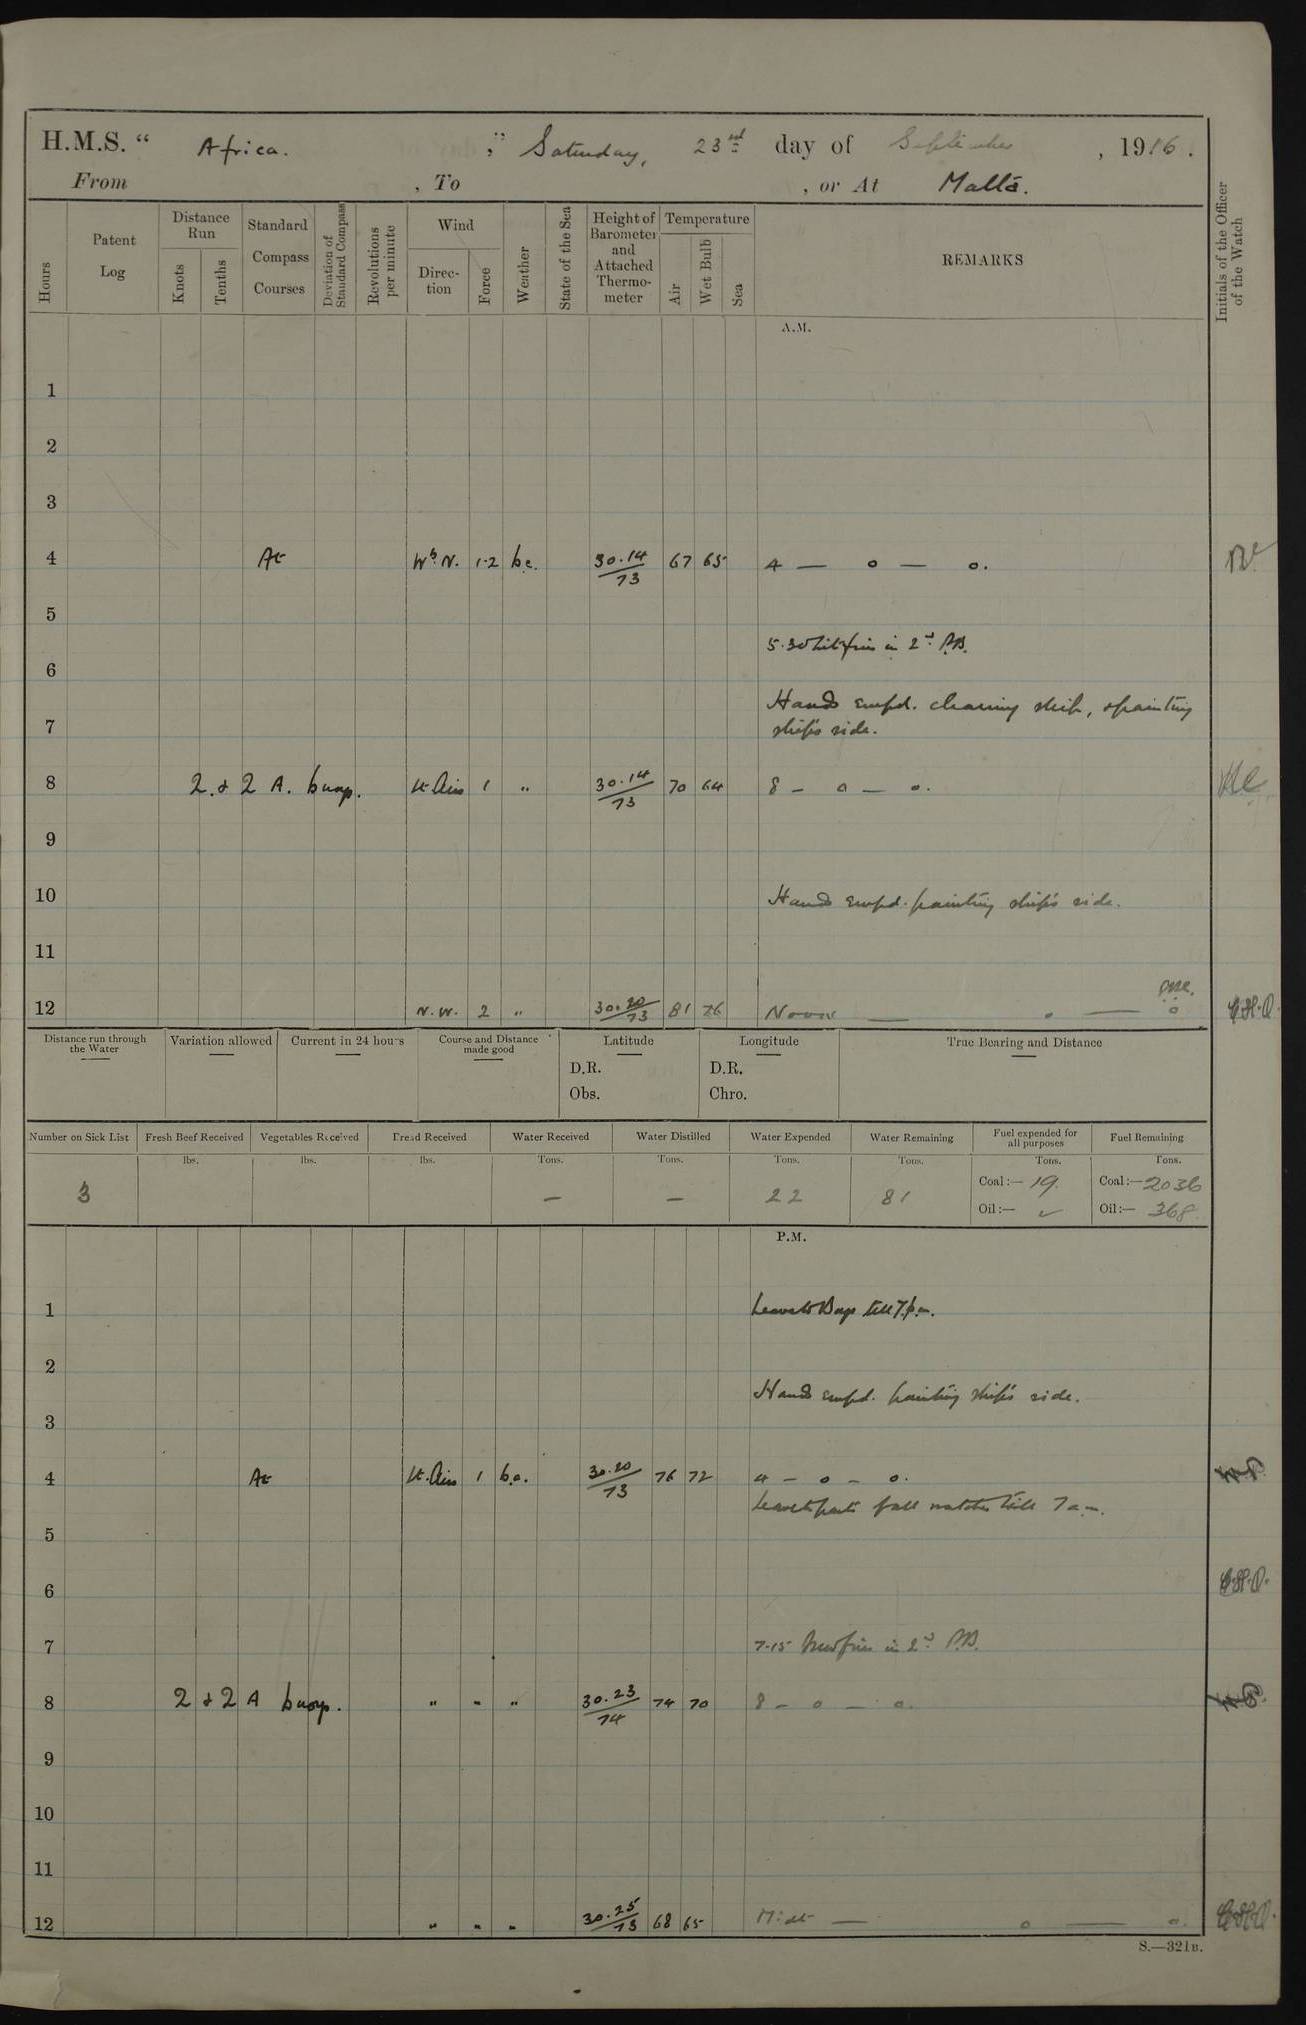 H.M.S. “ Africa. ,” Saturday, 23rd day of September , 1916.
From , To , or At Malta.
Hours
Patent Log
Distance Run
Knots
Tenths
Standard Compass Courses
Deviation of Standard Compass
Revolutions per minute
Wind
Direction
Force
Weather
State of the Sea
Height of Barometer and Attached Thermometer
Temperature
Air
Wet Bulb
Sea
REMARKS
Initials of the Officer of the Watch
A.M.
1
2
3
4 At WbN. 1-2 bc. 30.14/73 67 65 4 — o — o.
5
5.30 Lit fires in 2nd P.B.
6
Hands empd. cleaning ship, & painting
7
ship's side.
8 2 & 2 A. buoys. Lt Airs 1 " 30.14/73 70 64 8 – o — o.
9
10 Hands empd. painting ship's side.
11
12 N.W. 2 " 30.20/73 81 76 Noon — o — o
Distance run through the Water
Variation allowed
Current in 24 hours
Course and Distance made good
Latitude
D.R.
Obs.
Longitude
D.R.
Chro.
True Bearing and Distance
Number on Sick List
Fresh Beef Received
Vegetables Received
Bread Received
Water Received
Water Distilled
Water Expended
Water Remaining
Fuel expended for all purposes
Fuel Remaining
lbs. lbs. lbs. Tons. Tons. Tons. Tons. Tons. Tons.
3 — — 22 81 Coal:— 19. Coal:— 2036
Oil:— ✓ Oil:— 368
P.M.
1 Leave to Boys till 7 p.m.
2
Hands empd. painting ship's side.
3
4 At Lt. Airs 1 b.c. 30.20/73 76 72 4 – o – o.
Leave to part of all watches till 7 a.m.
5
6
7 7-15 Drew fires in 2nd P.B.
8 2 & 2 A buoys. " " " 30.23/74 74 70 8 – o — o.
9
10
11
12 " " " 30.25/73 68 65 Midt — o — o.
S.—321B.